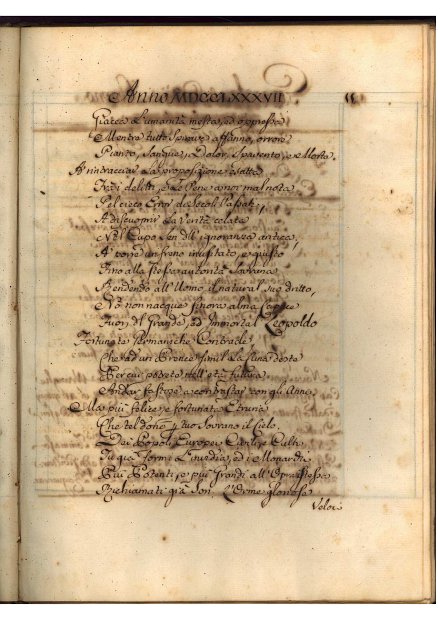 Anno MDCCLXXXVII
Giacea l'umanità mesta, ed oppressa
Mentre tutto spirava affanno, orrore
Pianto, Sangue, Dolor, Spavento, e Morte.
A rintracciar la proposizione esatta
Frà i delitti, e le Pene a noi mal nota
Pel cieco Error de' Secoli passati,
A discuoprir la Verità celata
Nel Cupo Sen dell'ignoranza antica,
A porre un freno inusitato, e giusto
Fino alla stessa autorità Sovrana
Rendendo all'Uomo il natural suo dritto,
Nò non nacque finora alma capace
Fuor, del Grande, ed Immortal Leopoldo
Fortunate Germaniche Contrade
Che ad un Eroe simil la Cuna deste
Per cui potrete nell'età futura
Andar fastose a contrastar con gli Anni,
Ma più felice, e fortunata Etruria
Che tel donò per tuo Sovrano il Cielo.
Dai Popoli Europei Culti, e Culti
Tu qui formi l'invidia, ed i Monarchi
Più Potenti, e più Grandi all'Opra stessa
Richiamati già son, l'Orme gloriose
Veloc